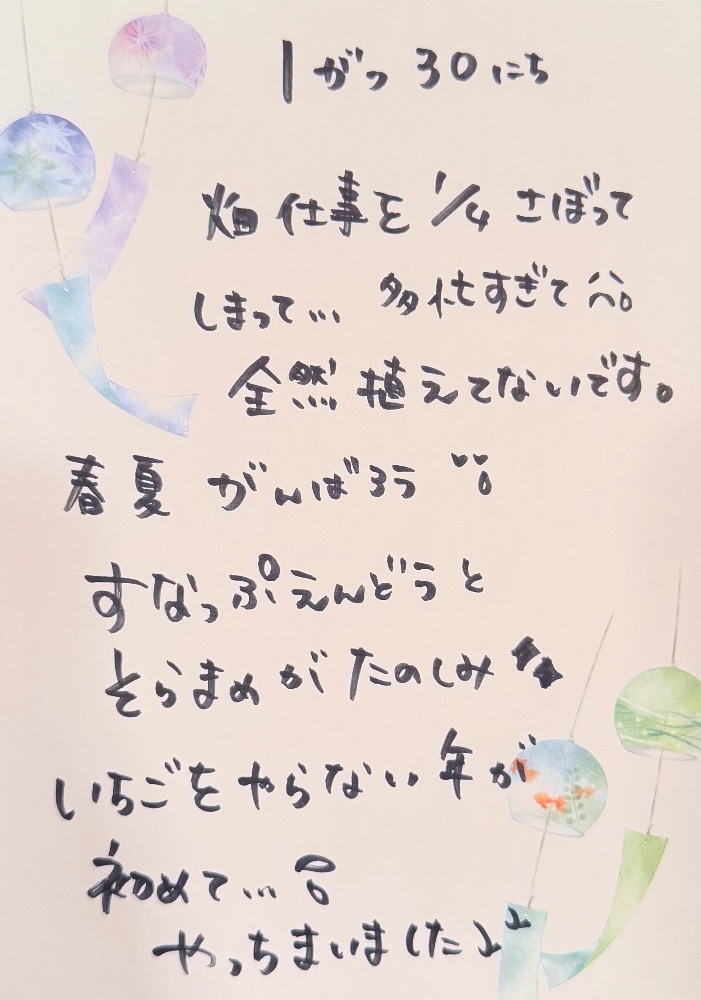 1がつ30にち
畑仕事を1/4さぼって
しまって… 多忙すぎて
全然植えてないです。
春夏がんばろう
すなっぷえんどうと
そらまめがたのしみ
いちごをやらない年が
初めて…。
やっちまいました